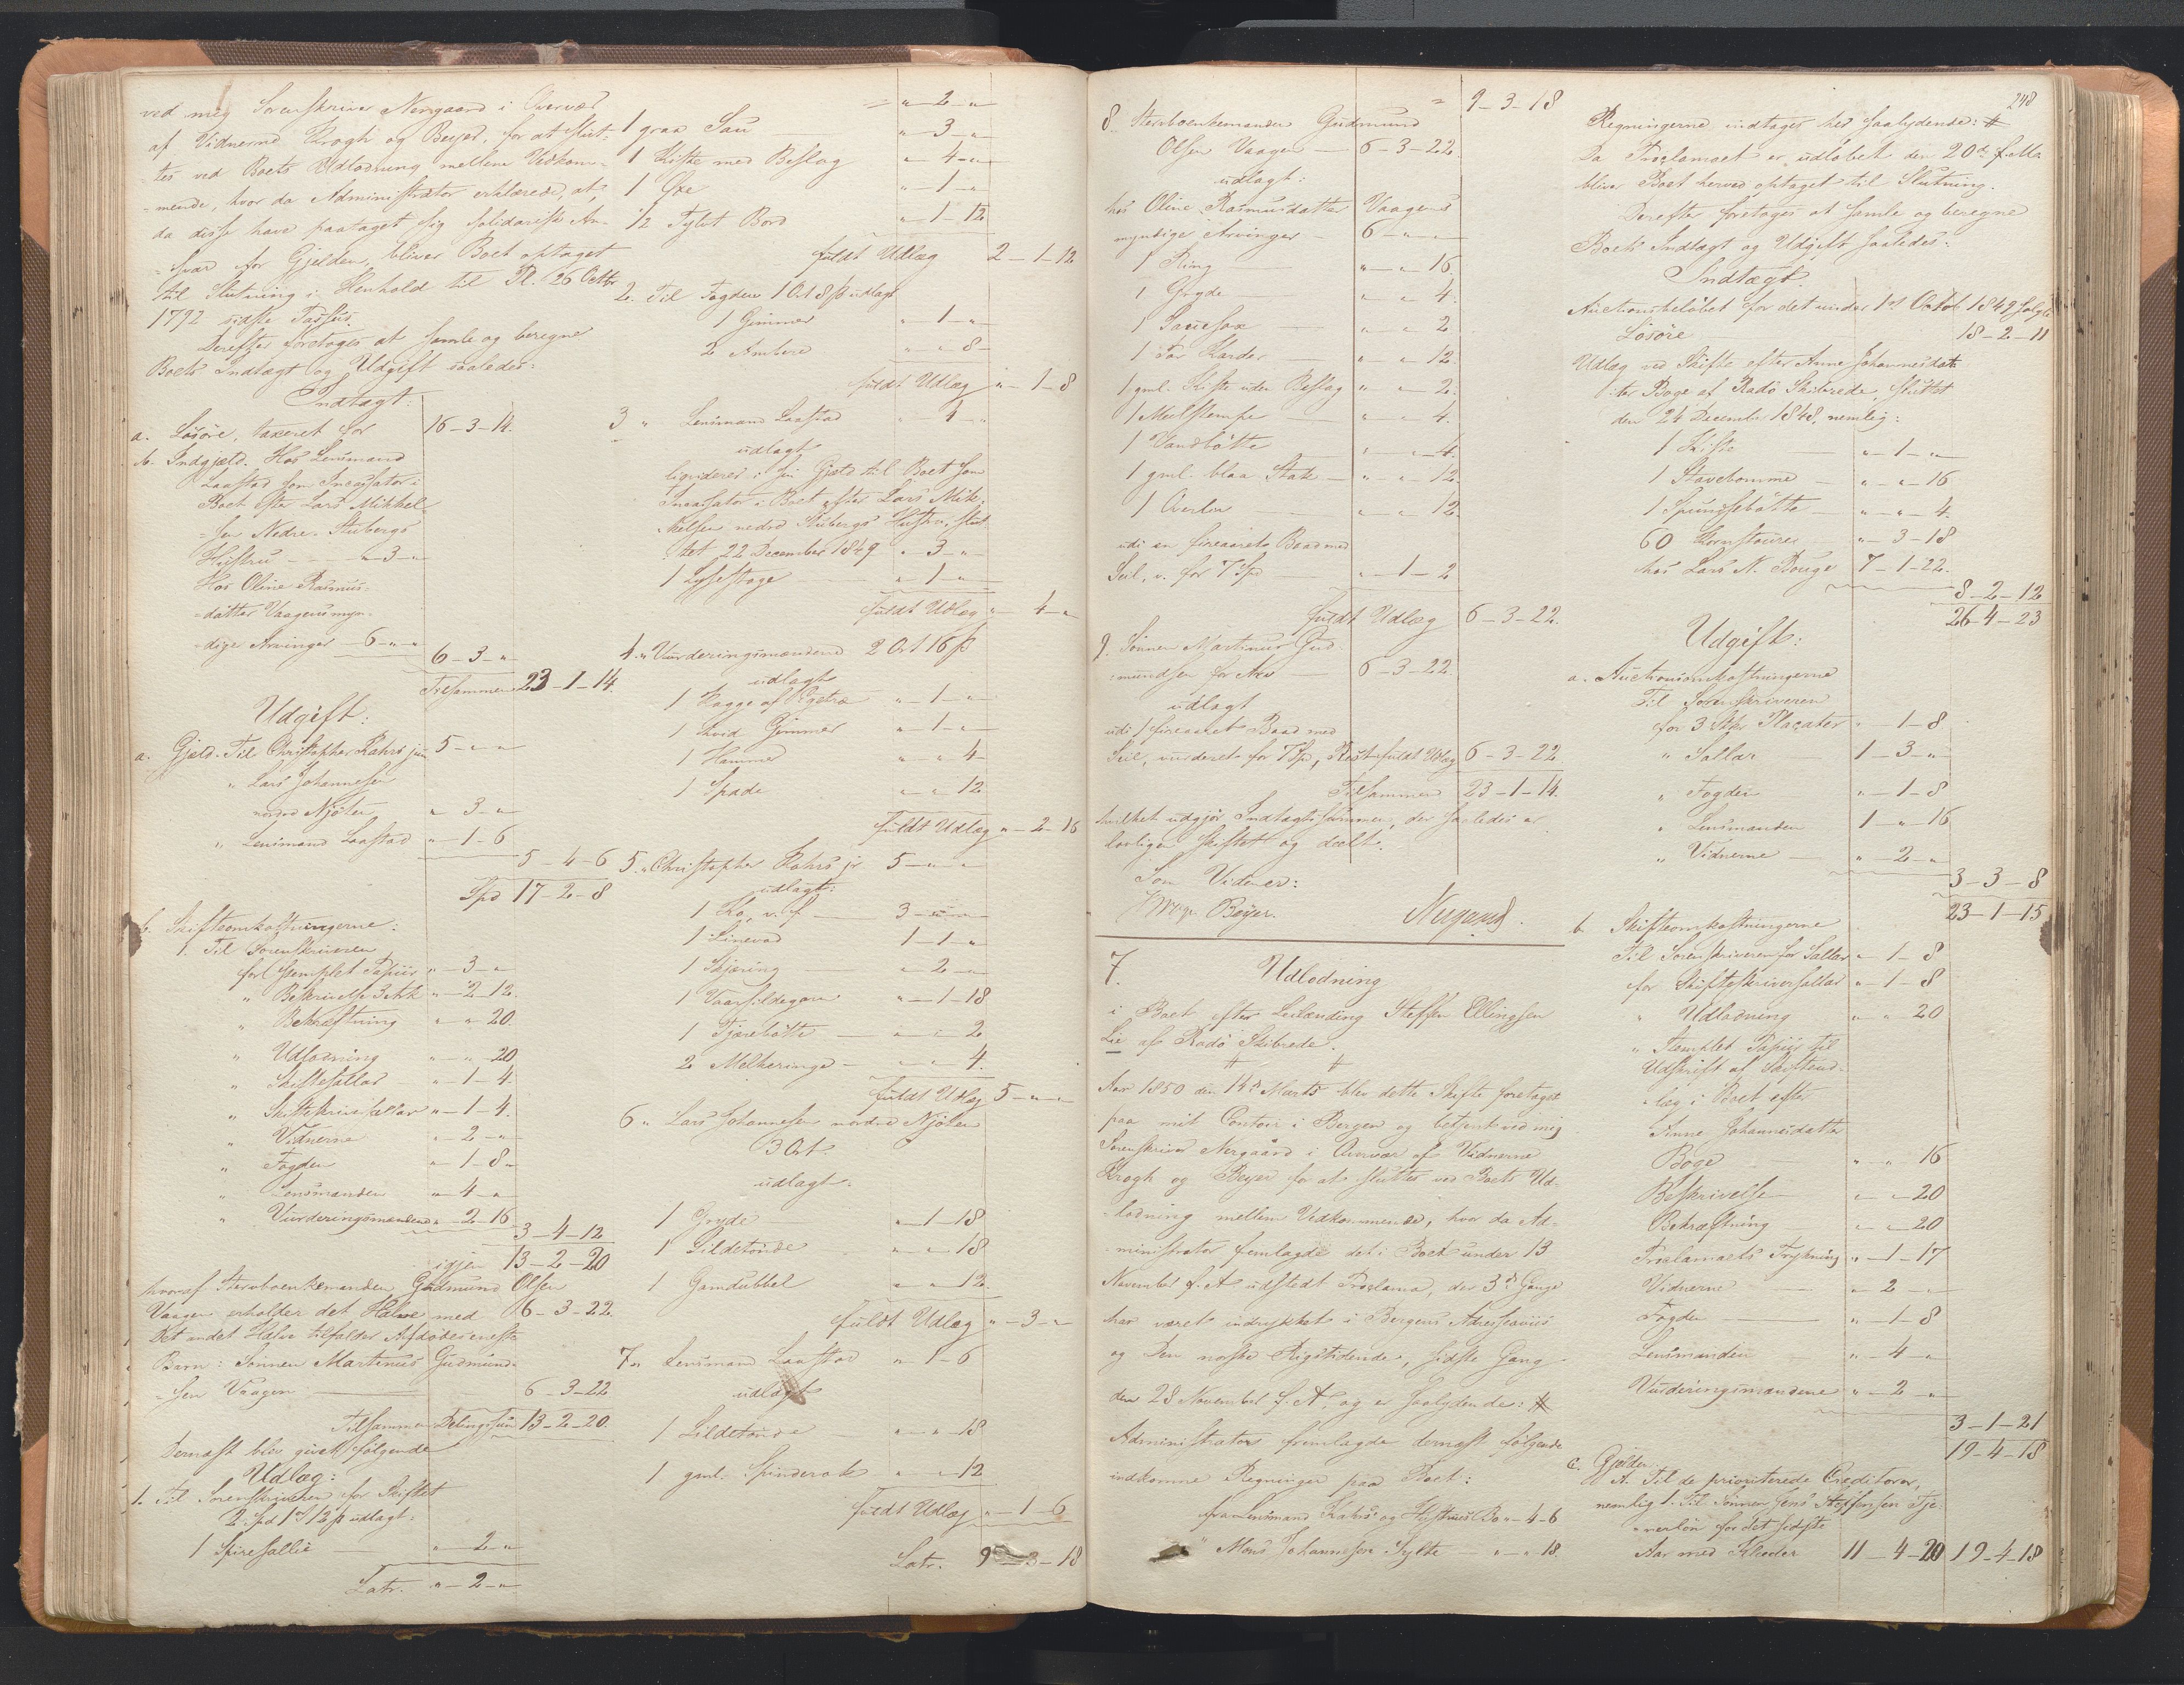 ved mig Sorenskriver Nergaard i Overvær
af Vidnerne Krogh og Beyer, for at slut-
tes ved Boets Udlodning mellem Vedkom-
mende, hvor da Administrator erklærede, at,
da disse have paataget sig solidarisk An-
svar for Gjelden, bliver Boet optaget
til Slutning i Henhold til Pl. 26 Octbr
1792 sidste Passus.
Derefter foretoges at samle og beregne
Boets Indtægt og Udgift saaledes:
Indtægt:
a. Løsøre, taxeret for 16-3-14.
b. Indgjæld. Hos Lensmand
Laastad som Incassator i
Boet efter Lars Mikkel-
sen Nedre-Stubergs
Hustru " - 3 - "
Hos Oline Rasmus-
datter Vaagens myn-
dige Arvinger 6 - " - "
6-3-"
Tilsammen 23-1-14.
Udgift:
a. Gjæld. Til Christopher Rahrs jun 5 - " - "
" Lars Johannesen
nordre Njøten " - 3 - "
" Lensmand Laastad " - 1 - 6
5-4-6
Spd 17-2-8
b. Skifteomkostningerne:
1. Til Sorenskriveren
for stemplet Papiir " - 3 - "
" Beskrivelse 3 Ark " - 2 - 12.
" Bekræftning " - " - 20.
" Udlodning " - " - 20
" Skiftesallar " - 1 - 4.
" Skifteskriversallar " - 1 - 4.
" Vidnerne " - 2 - "
" Fogden " - 1 - 8
" Lensmanden " - 4 - "
" Vurderingsmændene " - 2 - 16
3-4-12
igjen 13-2-20
hvoraf Stervboenkemanden Gudmund Olsen
Vaagen erholder det Halve med 6-3-22.
Det andet Halve tilfalder Afdødes eneste
Barn: Sønnen Martinus Gudmund-
sen Vaagen 6-3-22
Tilsammen Delingssum 13-2-20.
Dernæst blev givet følgende
Udlæg:
1. Til Sorenskriveren for Skiftet
2 Spd 1 Ort 12 ß udlagt:
1 Spiresallie " - 2 - "
Latr. " - 2 - "
= " - 2 - "
1 graa Sau " - 3 - "
1 Kiste med Beslag " - 4 - "
1 Øxe " - 1 - "
1/2 Tylvt Bord " - 1 - 12
fuldt Udlæg 2-1-12
2. Til Fogden 1 Ort 8 ß udlagt
1 Gimmer " - 1 - "
2 Ambere " - " - 8
fuldt Udlæg " - 1 - 8
3 " Lensmand Laastad " - 4 - "
udlagt
liqviderer i sin Gjæld til Boet som
Incassator i Boet efter Lars Mik-
kelsen nedre Stubergs Hustru, slut-
tet 22 December 1849 " - 3 - "
1 Lysestage " - 1 - "
fuldt Udlæg " - 4 - "
4. " Vurderingsmændene 2 Ort 16 ß
udlagt
1 Hagge af Rystræ " - 1 - "
1 hvid Gimmer " - 1 - "
1 Hammer " - " - 4
1 Spade " - " - 12
fuldt Udlæg " - 2 - 16
5. " Christopher Rahrs jr 5 - " - "
udlagt:
1 Ko, v. f. 3 - " - "
1 Linevad 1 - 1 - "
1 Skjæring " - 2 - "
1 Vaarsildegarn " - 1 - 18
1 Tjærebøtte " - " - 2
2 Melkeringe " - " - 4.
fuldt Udlæg 5 - " - "
6 " Lars Johannesen nordre Njøten
3 Ort
udlagt.
1 Gryde " - 1 - 18
1 Sildetønde " - " - 18
1 Gamdubbel " - " - 12.
fuldt Udlæg " - 3 - "
7 " Lensmand Laastad " - 1 - 6
udlagt
1 Sildetønde " - " - 18
1 gml. Spinderok " - " - 12
fuldt Udlæg " - 1 - 6
Latr. 9 - 3 - 18
= 9-3-18
8. Stervboenkemanden Gudmund
Olsen Vaagen 6-3-22.
udlagt:
hos Oline Rasmusdatter Vaagens
myndige Arvinger 6 - " - "
1 Ring " - " - 16.
1 Gryde " - " - 4.
1 Sauesax " - " - 2
1 Par Karder " - " - 12.
1 gml. Kiste uden Beslag " - " - 2.
1 Meelstempe " - " - 4.
1 Vandbøtte " - " - 4.
1 gml. blaa Stak " - " - 12.
1 Overlin " - " - 12.
udi en fireaaret Baad med
Seil, v. for 7 Spd " - 1 - 2
fuldt Udlæg 6-3-22.
9. Sønnen Martinus Gud-
mundsen for Arv 6-3-22
udlagt
udi 1 fireaaret Baad med
Seil, vurderet for 7 Spd, Rest fuldt Udlæg 6-3-22
Tilsammen 23-1-14.
hvilket udgjør Indtægtssummen, der saaledes er
lovligen skiftet og deelt.
Som Vidner:
Krogh. Beyer. Nergaard.
7. Udlodning
i Boet efter Leilænding Steffen Ellingsen
Lie af Radø Skibrede.
Aar 1850 den 14de Marts blev dette Skifte foretaget
paa mit Contoir i Bergen og betjent ved mig
Sorenskriver Nergaard i Overvær af Vidnerne
Krogh og Beyer for at sluttes ved Boets Ud-
lodning mellem Vedkommende, hvor da Ad-
ministrator fremlagde det i Boet under 13
November f. A. udstedt Proclama, der 3de Gange
har været indrykket i Bergens Adresseaviis
og Den norske Rigstidende, sidste Gang
den 28 November f. A, og er saalydende: #
Administrator fremlagde dernæst følgende
indkomne Regninger paa Boet:
fra Lensmand Rahrs og Hustrues Bo " - 4 - 6
" Mons Johannesen Sylte " - " - 18.
248
Regningerne indtages her saalydende: #
Da Proclamaet er udløbet den 20de f. M.
bliver Boet herved optaget til Slutning.
Derefter foretoges at samle og beregne
Boets Indtægt og Udgift saaledes:
Indtægt.
Auctionsbeløbet for det under 1ste Octob 1849 solgte
Løsøre 18-2-11
Udlæg ved Skifte efter Anne Johannesdat-
ter Boge af Radø Skibrede, sluttet
den 24 December 1848, nemlig:
1 Kiste " - 1 - "
1 Stavebomme " - " - 16
1 Spundsebøtte " - " - 4
60 Kornstaurer " - 3 - 18
hos Lars N. Bouge 7-1-22.
8-2-12
26-4-23
Udgift:
a. Auctionsomkostningerne
Til Sorenskriveren
for 3 Stkr Placater " - 1 - 8
" Sallar 1 - 3 - "
" Fogden " - 1 - 8
" Lensmanden 1 - " - 16
" Vidnerne " - 2 - "
3-3-8
23-1-15
b. Skifteomkostningerne
Til Sorenskriveren for Sallar " - 1 - 8
for Skifteskriversallar " - 1 - 8
" Udlodning " - " - 20
" Stemplet Papiir til
Udskrift af Skifteud-
læg i Boet efter
Anne Johannesdatter
Boge " - " - 16
Beskrivelse " - " - 20
Bekræftning " - " - 20
Proclamaets Trykning " - 1 - 17
Vidnerne " - 2 - "
Fogden " - 1 - 8
Lensmanden " - 4 - "
Vurderingsmændene " - 2 - "
3-1-21
19-4-18
c. Gjælden.
A. Til de prioriterede Creditorer,
nemlig 1. Til Sønnen Jens Steffensen Tje-
nerløn for det sidste
Aar med Klæder 11-4-20 19-4-18